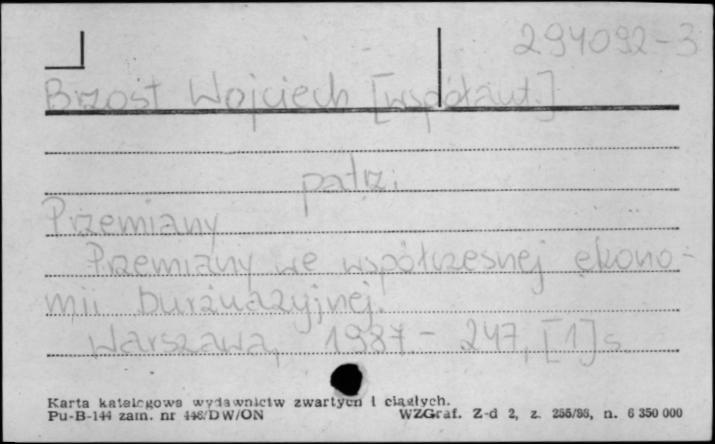 294092-3
Brzost Wojciech [współaut.]
patrz:
Przemiany
Przemiany we współczesnej ekono-
mii burżuazyjnej.
Warszawa, 1987.- 247, [1] s.
Karta katalogowa wydawnictw zwartych i ciągłych.
Pu-B-144 zam. nr 446/DW/ON WZGraf. Z-d 2, z. 255/86, n. 6 350 000